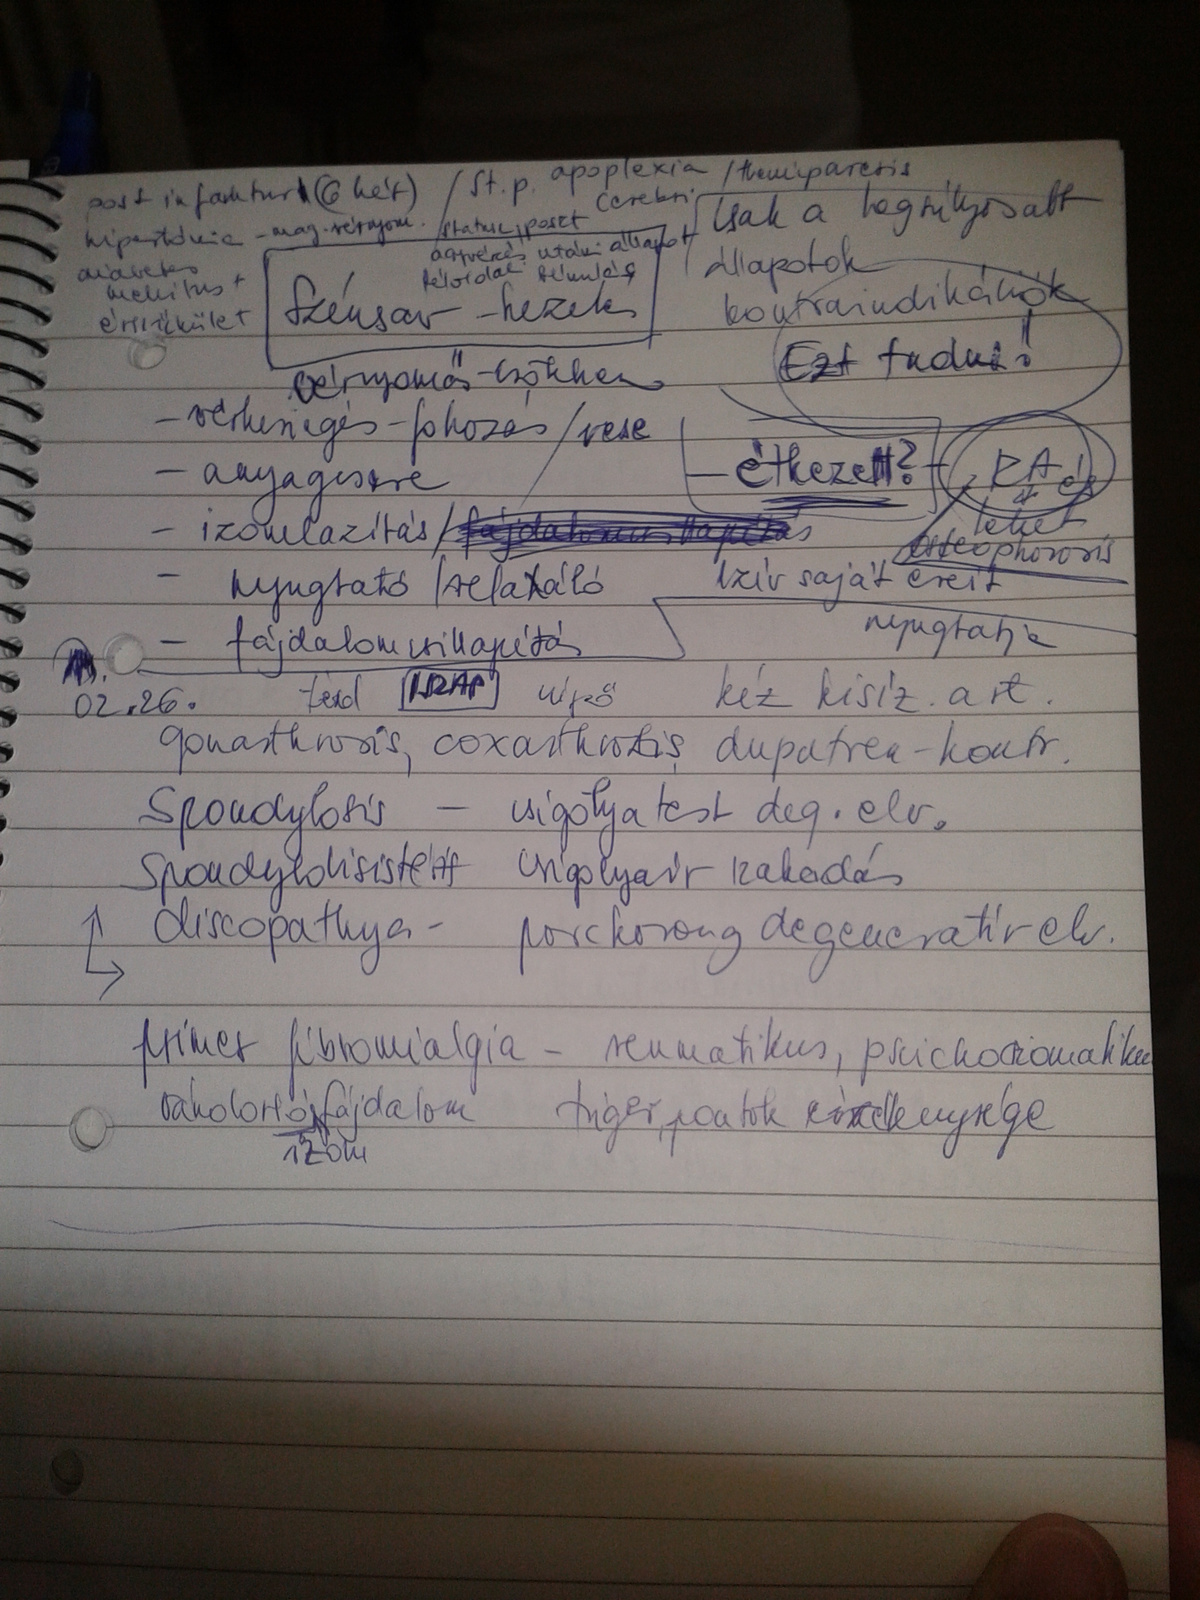 post infarktus (6 hét) / St. p. apoplexia / hemiparesis
cerebri
hipertónia - mag. vérnyom. / status post
agyvérzés utáni állapot
féloldali bénulás
diabetes
mellitus +
érszűkület
Szénsav - kezek
Csak a legsúlyosabb
állapotok
kontraindikációk
Ezt tudni!
vérnyomás-csökken
- vérkeringés - fokozás / vese
- étkezett?
RA
lehet
- anyagcsere
- izomlazítás / fájdalomcsillapítás
- nyugtató / relaxáló
szív saját ereit
nyugtatja
- fájdalomcsillapítás
02.26.
térd csípő kéz kisíz. art.
gonarthrosis, coxarthrosis, dupatren-kontr.
Spondylosis - csigolyatest deg. elv.
csigolyaív szakadás
discopathya - porckorong degeneratív elv.
primer fibromialgia - reumatikus,
vándorló fájdalom
izom
triger pontok